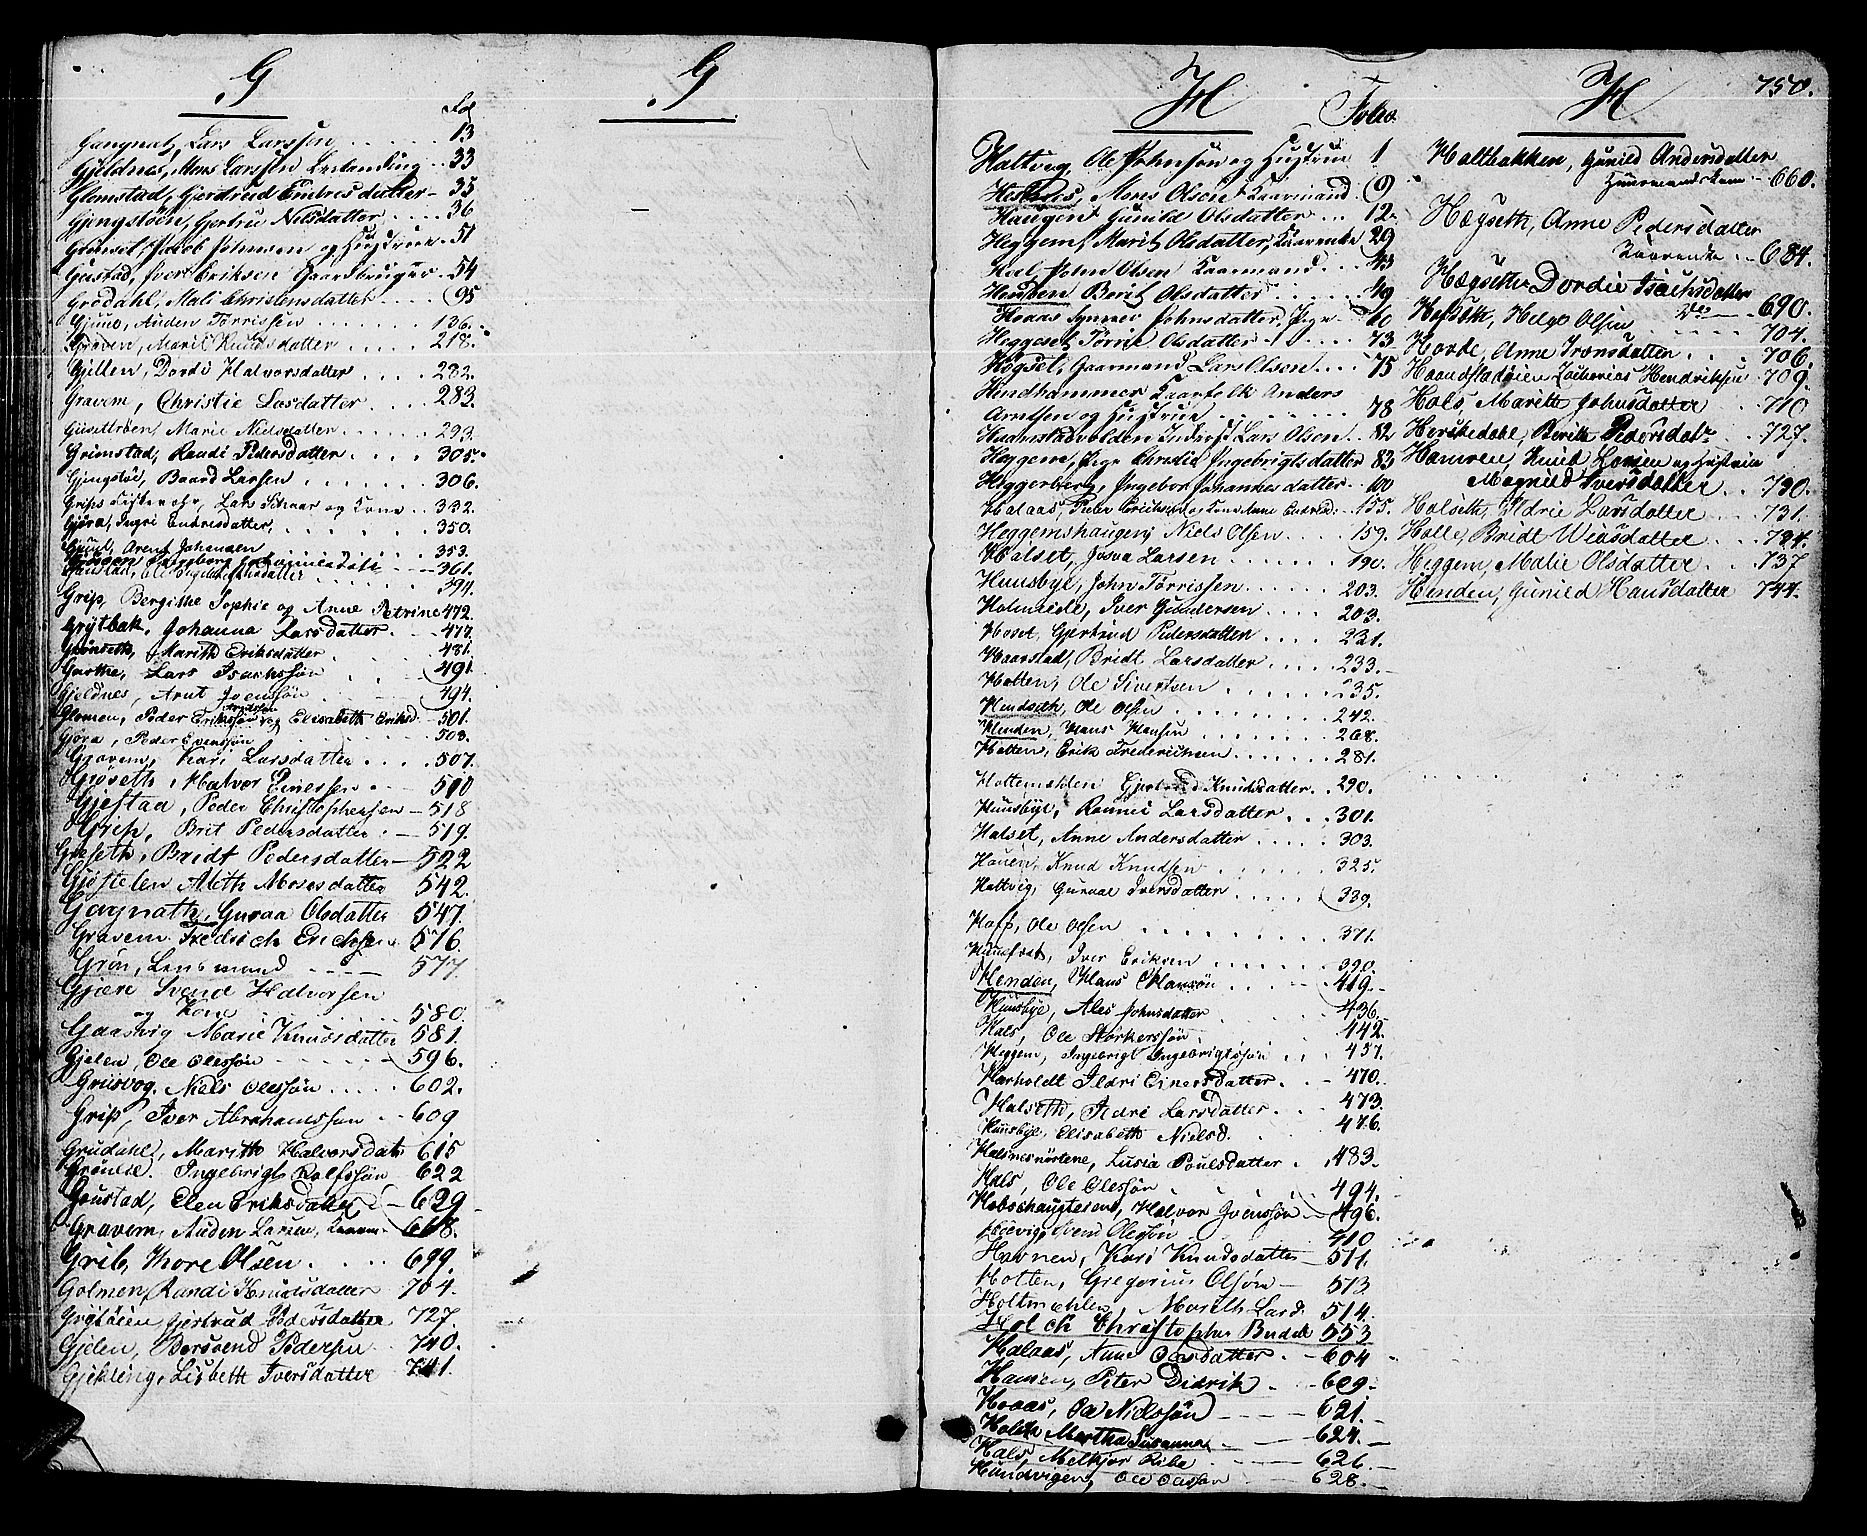 G
Fol
Gangnat, Lars Larssen 13
Gjeldnes, Mons Larssen 33
Glomstad, Gjertrud Endresdatter 35
Gjengstøen, Gjertru Nilsdatter 36
Jacob Johnsen og Hustrue 51
Gustad, Iver Eriksen Gaardbruger 54
Grødahl, Mali Christensdatter 95
Auden Tørrissen 136.
Marit Knudsdatter 218.
Gjellen, Dordi Halvorsdatter 282.
Gravem, Christie Lasdatter 283.
Marie Nielsdatter 293.
Grimstad, Randi Pedersdatter 305.
Gjengstøe, Baard Larsen 306.
Grips Lars og Kone 332.
Gjøra, Ingri Endrisdatter 350.
Arent Johansen 353.
361.
394.
Grip, Bergithe Sophie og Anne Petrine 472.
Grytbak, Johanna Larsdatter 477.
Grønseth, Marith Eriksdatter 481.
Lars Isachssøn 491.
Gjeldnes, Arnt Iversøn 494.
Glomen, Peder Erikssøn og Elisabeth Eriksd. 501.
Gjøra, Peder Evenssøn 503.
Gravem, Kari Larsdatter 507.
Grøseth, Halvor Einersen 510
Gjestad, Peder Christophersen 518
Grip, Brit Pedersdatter 519.
Grøseth, Bridt Pedersdatter 522
Gjøstelen Aleth Mosesdatter 542.
Gagnath, Guraa Olsdatter 547.
Gravem Fredrich Erichsen 576.
Grøn, Lensmand 577.
Gjære Svend Halvorsen
og Kone 580
Gaasvig Marie Knudsdatter 581.
Gjelen, Ole Olessøn 596.
Griisvog, Niels Olessøn 602.
Grip, Iver Abrahamssøn 609
Grudahl, Marith Halvorsdatr 615
Ingebrigt Rolfssøn 622
Goustad, Elen Eriksdatter 629
Gravem, Auden Larsen, 668.
Grib, Thore Olsen 699.
Golmen, Randi Knudsdatter 704.
Grytøien Gjertrud Pedersdatter 727.
Gjelen, Bersvend Pedersen 740.
Gjekling, Lisbeth Iversdatter 741.
G
H
Folio
Haltvig, Ole Johnsøn og Hustrue 1
Mons Olsen Kaarmand 9
Haugen Gunild Olsdatter 12
Heggem Marit Olsdatter, Kaarenke 29
John Olsen Kaarmand 43
Berit Olsdatter 49
Hoaas Synnev Johnsdatter, Pige 60
Heggeset Tørrie Olsdatter 73
Høgset, Gaarmand Lars Olsen 75
Hindhammer Kaarfolk Anders
Arntsen og Hustrue 78
Haamstadvolden Inderst Lars Olsen 82
Heggem, Pige Christie Ingebrigtsdatter 83
Heggerberg, Ingebor Johannesdatter 100
Halaas, Peder Erichsen og Kone 155.
Heggemshaugen, Niels Olsen 159.
Halset, Josva Larsen 190.
Huusbye, John Tørrissen 203.
Holmeide, Iver Gundersen 203.
Hoset, Gjertrud Pedersdatter 221.
Haarstad, Bridt Larsdatter 233.
Holten, Ole Sivertsen 235.
Hendseth, Ole Olsen 242.
Henden, Hans Hansen 268.
Holten, Erik Frederiksen 281.
Holtemehlen Gjertrud Knudsdatter 290.
Huusbye, Rannei Larsdatter 301.
Halset, Anne Andersdatter 303.
Hauen, Knud Knudsen 325.
Haltvig, Guruae Iversdatter 339.
Ole Olsen 371.
Iver Eriksen 390.
Henden, Hans Hansøn 419.
Huusbye, Ales Johnsdatter 436.
Hals, Ole Storkerssøn 442.
Heggem, Ingebrigt Ingebrigtssøn 457.
Harholdt Ildri Einersdatter 470.
Halseth, Ildri Larsdatter 473.
Huusbye, Elisabeth Nielsd. 476.
Halsnesnørtene, Lusia Poulsdatter 483.
Hals, Ole Olessøn 494.
Halvor Ivenssøn 496.
Svend Olessøn 410
Havnen, Kari Knudsdatter 511.
Holten, Gregorius Olsøn 513
Holtmehlen, Marith Lard. 514.
Holck Christopher Budde 553
Halaas, Anne Olesdatter 604
Hansen, Peter Didrik 609
Hoaas, Ole Nielssøn 621.
Holck Martha Susanna 624.
Hals, Melkjor Ribe 626.
Hundvigen, Ole Olessøn 628.
H
750.
Holtbakken, Gunild Andersdatter
Huusmandskone 660.
Hægseth, Anne Pedersdatter
Kaarenke 684.
Hægseth Dordie Isachsdatter
Do 690.
Helge Olsen 704.
Horde, Anne Tronsdatter 706.
Haandstadøien Zacherias Hendriksen 709.
Hals, Marith Johnsdatter 710
Herskedahl, Berith Pedersdatr 727.
Hamren, Knud Larsen og Hustrue
Magnild Iversdatter 730.
Halseth, Ildrie Larsdatter 731.
Holle, Bridt 734.
Heggem, Malie Olsdatter 737
Henden, Gunild Hansdatter 744.